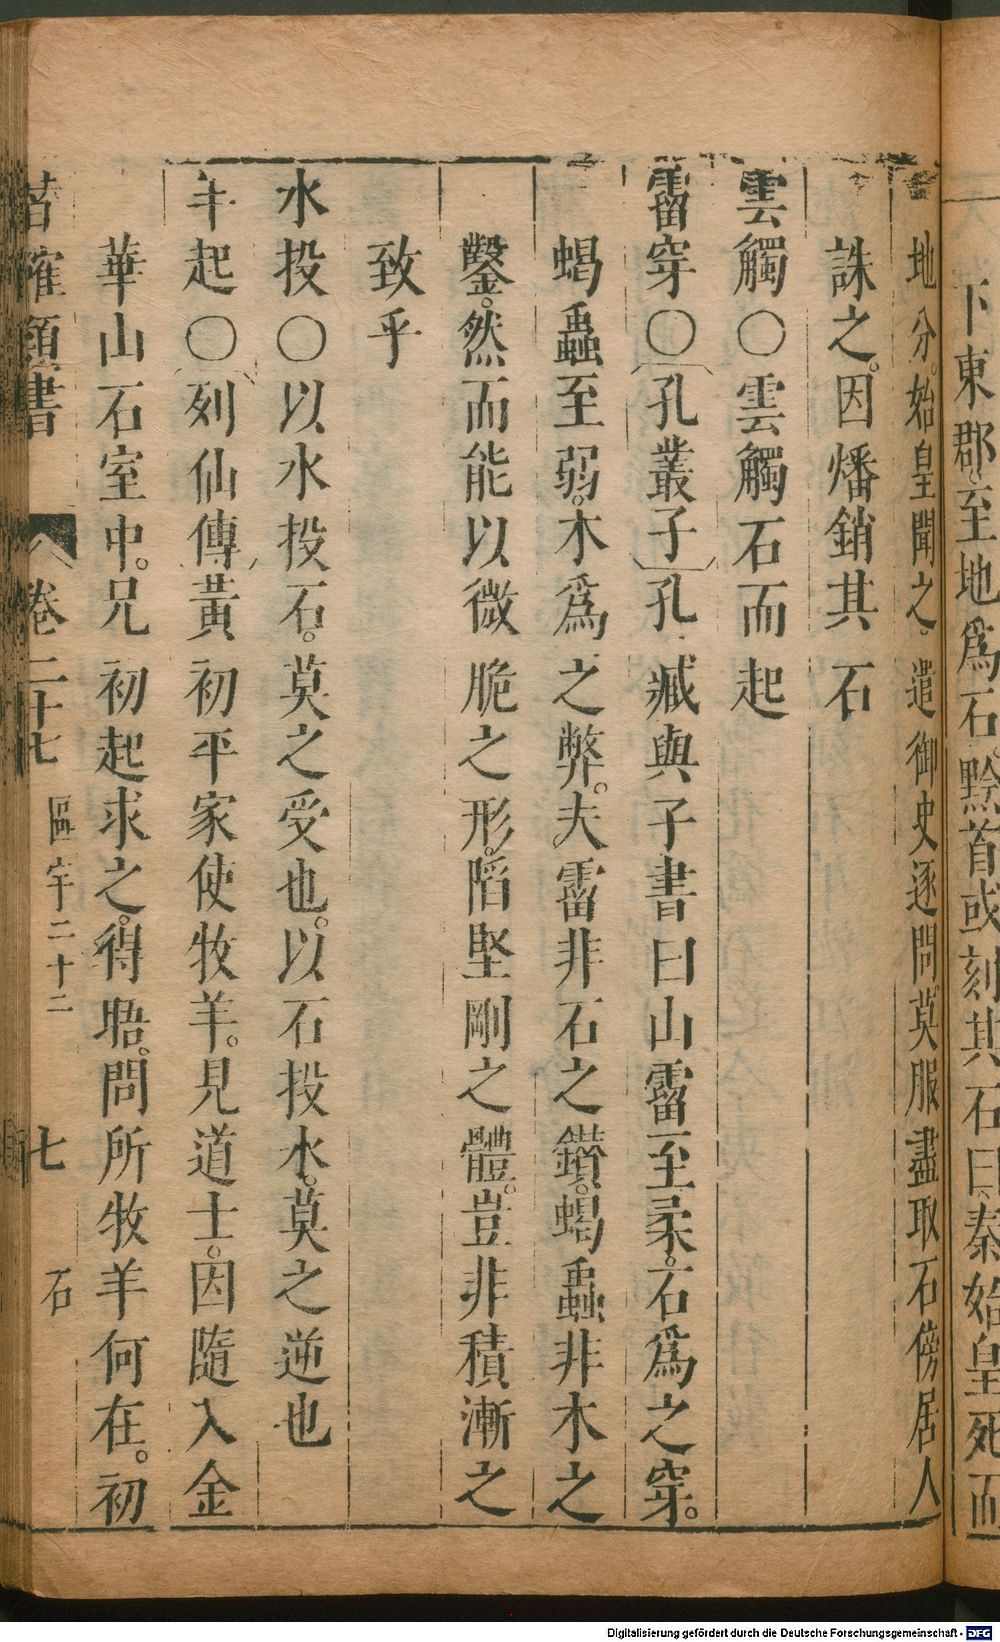 下東郡至地爲石黔首或刻其石曰秦始皇死而
地分。始皇聞之。遣御史逐問莫服盡取石傍居人
誅之。因燔銷其石
雲觸〇雲觸石而起
霤穿〇孔叢子孔臧與子書曰山霤至柔。石爲之穿。
蝎蟲至弱。木爲之弊。夫霤非石之鑽。蝎蟲非木之
鑿。然而能以微脆之形。陷堅剛之體。豈非積漸之
致乎
水投〇以水投石。莫之受也。以石投水。莫之逆也
羊起〇列仙傳黃初平家使牧羊。見道士。因隨入金
華山石室中。兄初起求之。得晤。問所牧羊何在。初
類書 卷二十七 區宇二十二 七 石
Digitalisierung gefördert durch die Deutsche Forschungsgemeinschaft - DFG